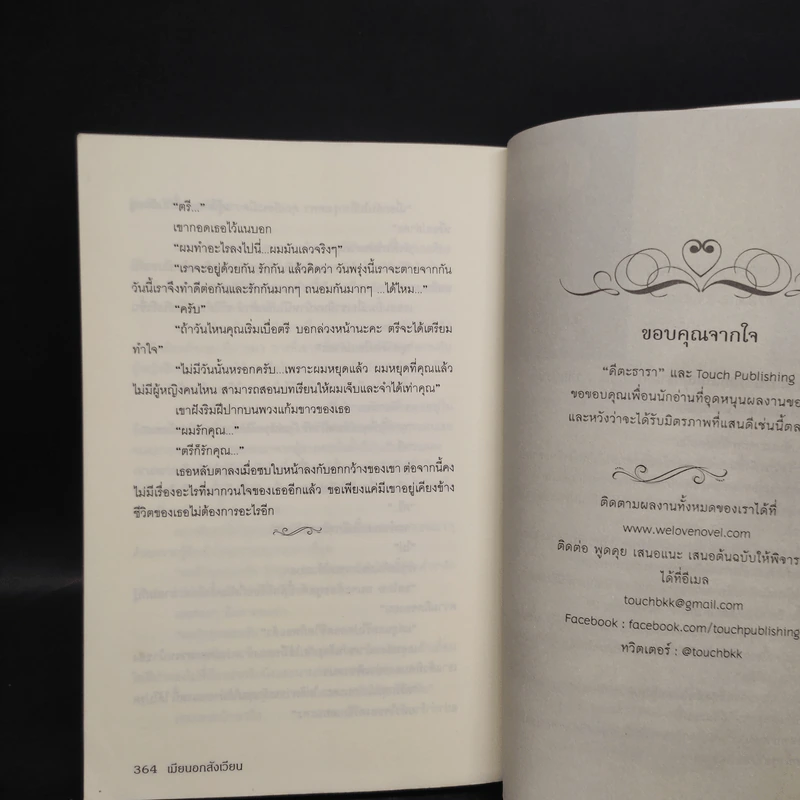 “ตรี...”
เขากอดเธอไว้แนบอก
“ผมทำอะไรลงไปนี่...ผมมันเลวจริงๆ”
“เราจะอยู่ด้วยกัน รักกัน แล้วคิดว่า วันพรุ่งนี้เราจะตายจากกัน
วันนี้เราจึงทำดีต่อกันและรักกันมากๆ ถนอมกันมากๆ ...ได้ไหม...”
“ครับ”
“ถ้าวันไหนคุณเริ่มเบื่อตรี บอกล่วงหน้านะคะ ตรีจะได้เตรียม
ทำใจ”
“ไม่มีวันนั้นหรอกครับ...เพราะผมหยุดแล้ว ผมหยุดที่คุณแล้ว
ไม่มีผู้หญิงคนไหน สามารถสอนบทเรียนให้ผมเจ็บและจำได้เท่าคุณ”
เขาฝังริมฝีปากบนพวงแก้มขาวของเธอ
“ผมรักคุณ...”
“ตรีก็รักคุณ...”
เธอหลับตาลงเมื่อซบใบหน้าลงกับอกกว้างของเขา ต่อจากนี้คง
ไม่มีเรื่องอะไรที่มากวนใจของเธออีกแล้ว ขอเพียงแค่มีเขาอยู่เคียงข้าง
ชีวิตของเธอไม่ต้องการอะไรอีก
364 เมียนอกสังเวียน
ขอบคุณจากใจ
“คีตะธารา” และ Touch Publishing
ขอขอบคุณเพื่อนนักอ่านที่อุดหนุนผลงานขอ
และหวังว่าจะได้รับมิตรภาพที่แสนดีเช่นนี้ตล
ติดตามผลงานทั้งหมดของเราได้ที่
www.welovenovel.com
ติดต่อ พูดคุย เสนอแนะ เสนอต้นฉบับให้พิจาร
ได้ที่อีเมล
touchbkk@gmail.com
Facebook : facebook.com/touchpublishing
ทวิตเตอร์ : @touchbkk